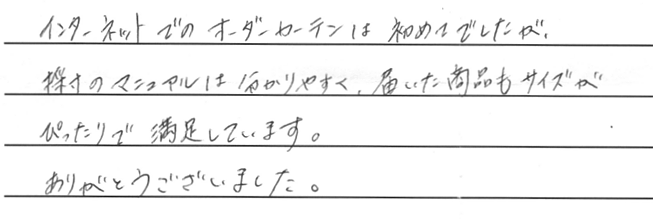 インターネットでのオーダーカーテンは初めてでしたが、
採寸のマニュアルは分かりやすく、届いた商品もサイズが
ぴったりで満足しています。
ありがとうございました。